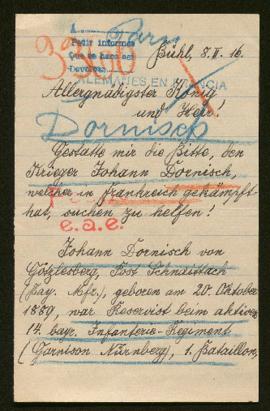 Bühl, 8. II. 16.
Pedir informes
ALEMANES EN FRANCIA
Allergnädigster König
und Herr!
Dornisch
Gestatte mir die Bitte, den
Krieger Johann Dornisch,
welcher in Frankreich gekämpft
hat, suchen zu helfen!
e.a.e.
Johann Dornisch von
Götzlesberg, Post Schnaittach
(Bay. Mfr.), geboren am 20. Oktober
1889, war Reservist beim aktiven
14. bayr. Infanterie-Regiment
(Garnison Nürnberg), 1. Bataillon,